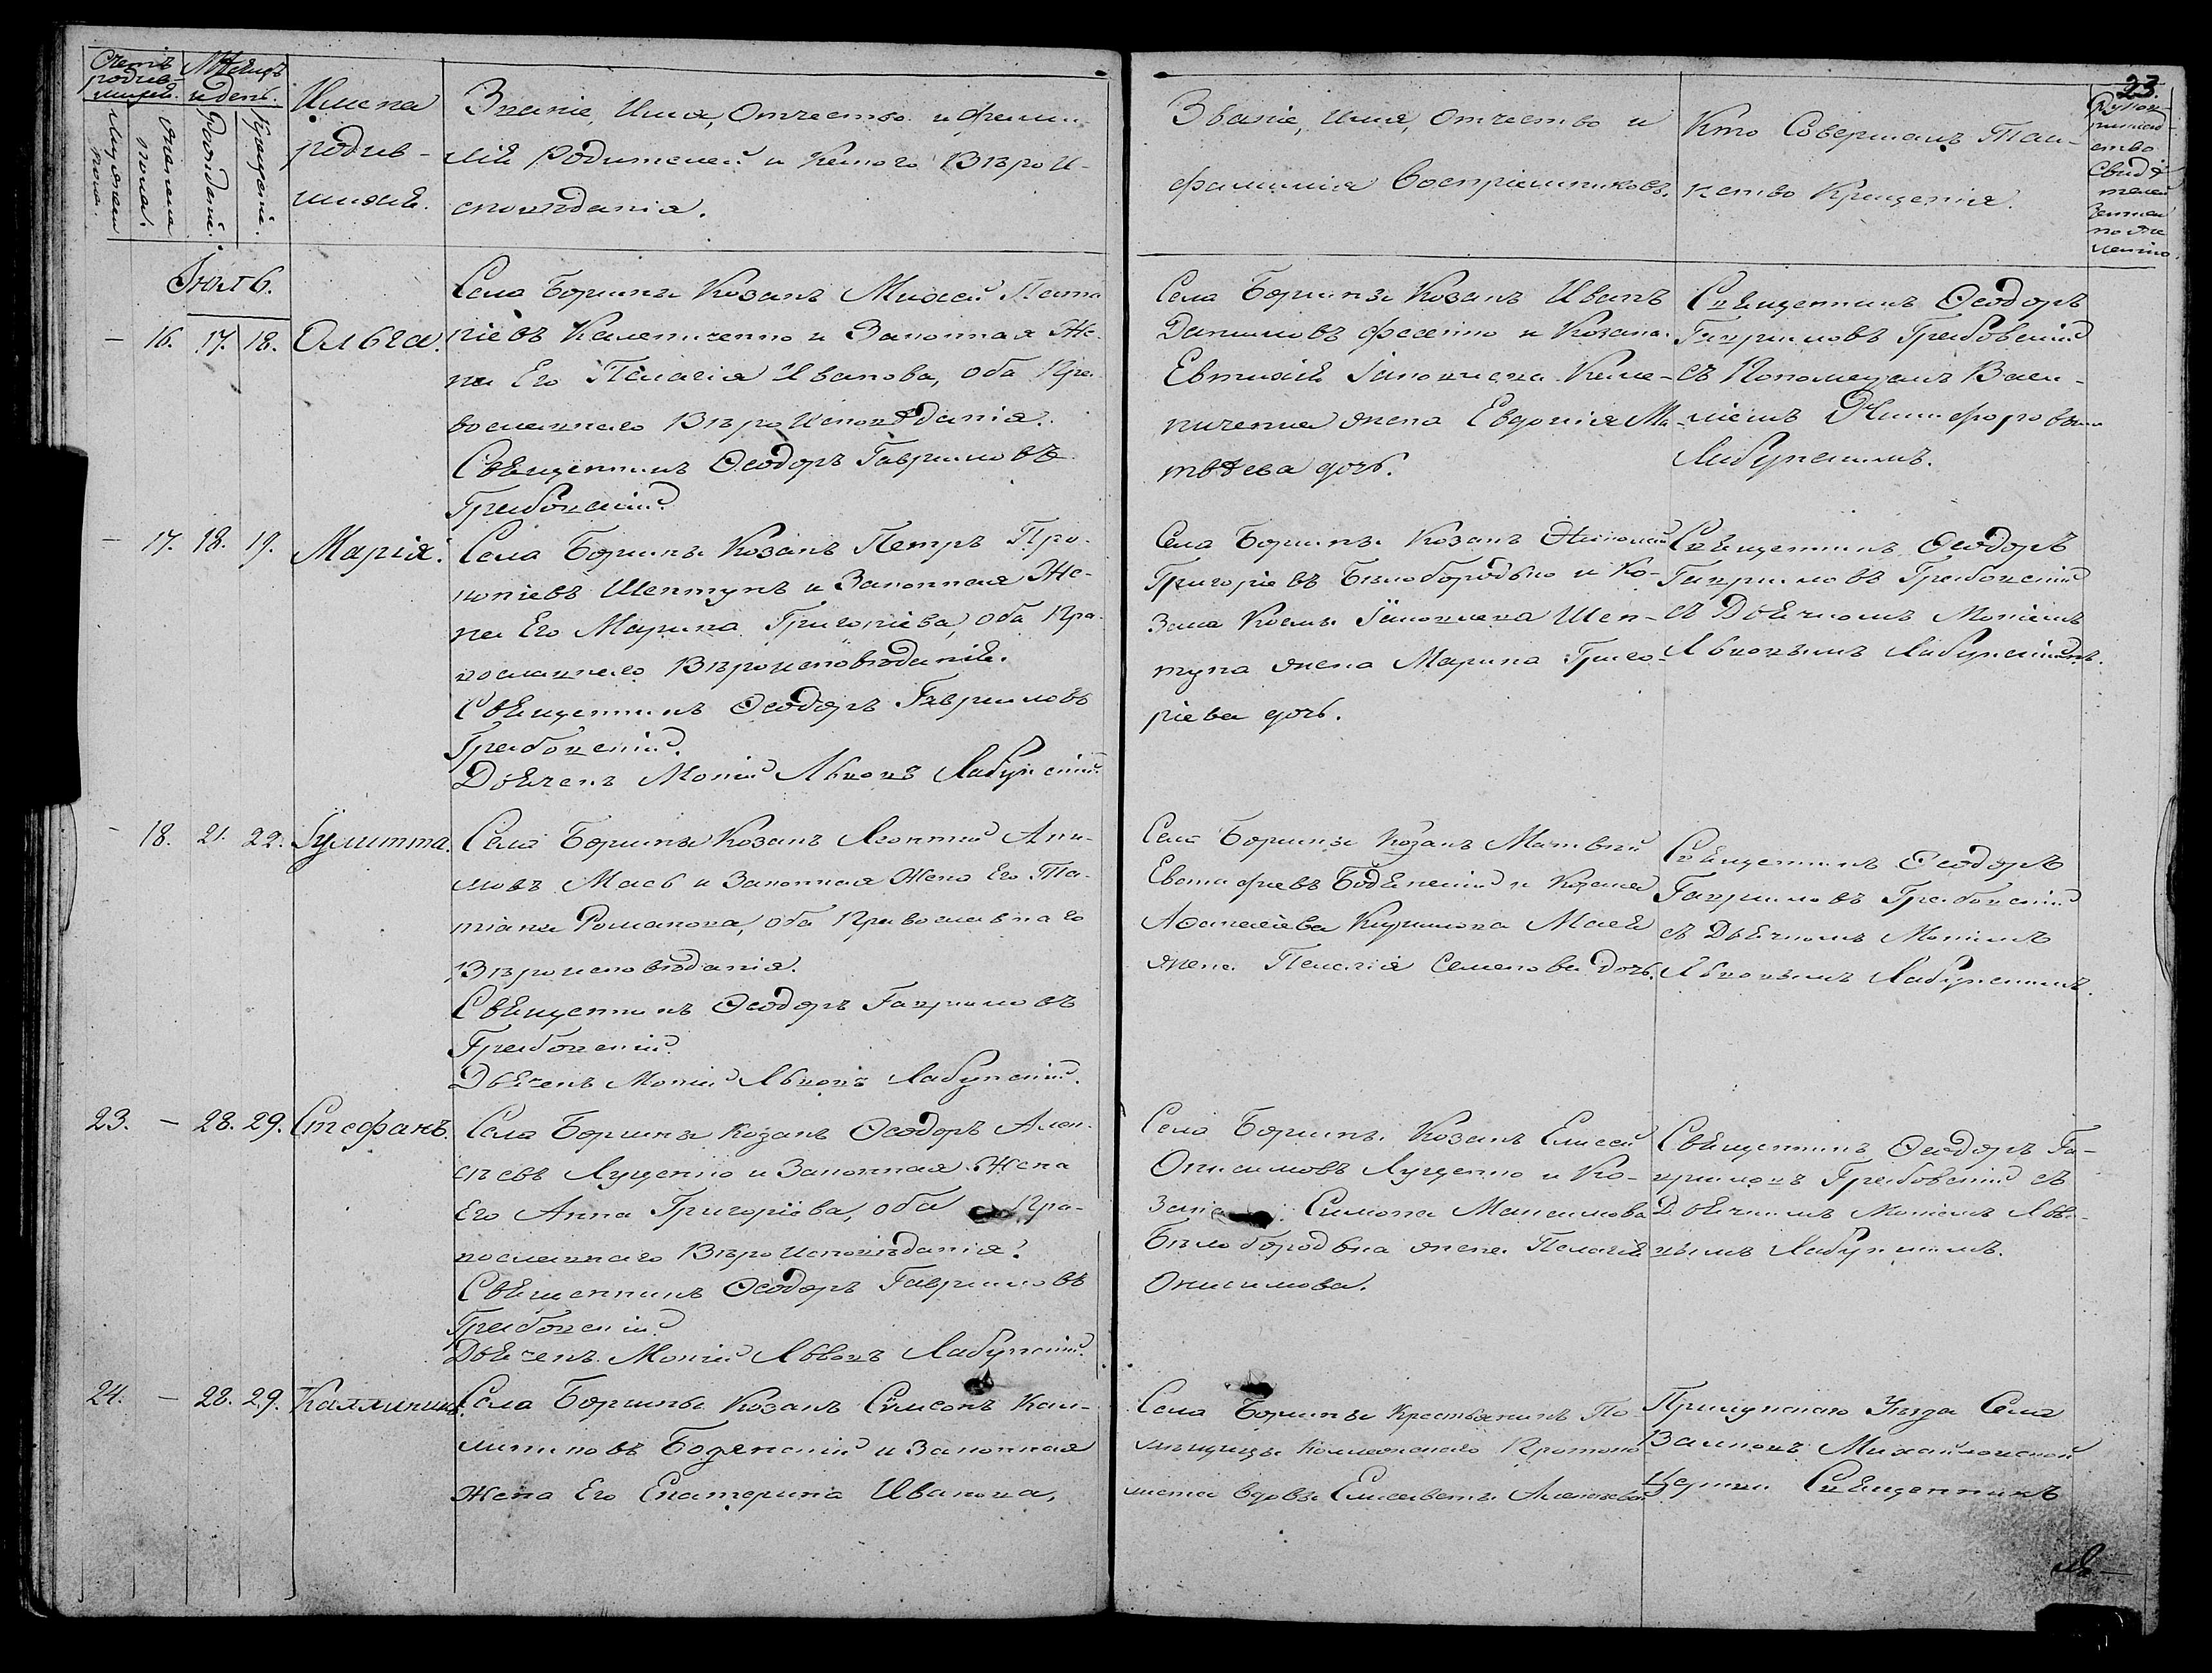 23.
Счетъ родив-
шихся.
Мѣсяцъ
и день.
Мужеска
пола.
Женска
пола.
Рожденіе.
Крещеніе.
Имена
родив-
шихся.
Званіе, Имя, Отчество и фами-
лія Родителей и Какого Вѣроис-
повѣданія.
Званіе, имя, отчество и
фамилія Воспріемниковъ.
Кто Совершалъ Таин-
ство Крещенія.
Рукоп-
рикладство
Свидѣ-
телей
записи
по же-
ланію
Іюль.
— 16. 17. 18. Ольга.
Села Борщны Козакъ Михей
ріевъ Калениченко и Законная Же-
на Его Пелагія Иванова, оба Пра-
вославнаго Вѣро Исповѣданія.
Священникъ Ѳеодоръ Гавриловъ
Грабовскій
Села Борщны Козакъ Иванъ
Даниловъ Фесенко и Козака
Евтихія Яковлева Кале-
ниченка жена Евдокія Ма-
твѣева дочь.
Священникъ Ѳеодоръ
Гавриловъ Грабовскій
съ Пономаремъ Васи-
ліемъ Никифоровымъ
Лабунскимъ.
— 17. 18. 19. Марія.
Села Борщны Козакъ Петръ Про-
копіевъ Шептунъ и Законная Же-
на Его Марина Григоріева, оба Пра-
вославнаго Вѣроисповѣданія.
Священникъ Ѳеодоръ Гавриловъ
Грабовскій.
Дьячекъ Мокій Львовъ Лабунскій.
Села Борщны Козакъ Николай
Григоріевъ Бѣлобородько и Ко-
зака Космы Яковлева Шеп-
туна жена Марина Григо-
ріева дочь.
Священникъ Ѳеодоръ
Гавриловъ Грабовскій
съ Дьячкомъ Мокіемъ
Львовымъ Лабунскимъ.
— 18. 21. 22. Іулитта.
Села Борщны Козакъ Леонтій Аки-
мовъ Мась и Законная Жена Его Та-
тіана Романова, оба Православнаго
Вѣроисповѣданія.
Священникъ Ѳеодоръ Гавриловъ
Грабовскій.
Дьячекъ Мокій Львовъ Лабунскій.
Села Борщны Козакъ Матвѣй
Евстафіевъ Бодянскій и Козака
Аѳанасіева Кирилова Мася
жена Пелагія Семенова дочь.
Священникъ Ѳеодоръ
Гавриловъ Грабовскій
съ Дьячкомъ Мокіемъ
Львовымъ Лабунскимъ.
23. — 28. 29. Стефанъ.
Села Борщны Козакъ Ѳеодоръ Алек-
сѣевъ Луценко и Законная Жена
Его Анна Григоріева, оба Пра-
вославнаго Вѣро Исповѣданія.
Священникъ Ѳеодоръ Гавриловъ
Грабовскій.
Дьячекъ Мокій Львовъ Лабунскій.
Села Борщны Козакъ Елисей
Онисимовъ Луценко и Ко-
зака Симона Максимова
Бѣлобородька жена Пелагія
Онисимова.
Священникъ Ѳеодоръ Га-
вриловъ Грабовскій съ
Дьячкомъ Мокіемъ Льво-
вымъ Лабунскимъ.
24. — 28. 29. Каллиникъ.
Села Борщны Козакъ Симеонъ Кал-
линиковъ Бодянскій и Законная
Жена Его Екатерина Иванова,
Села Борщны Крестьянинъ По-
мѣщицы Коллежскаго Протоко-
листа вдовы Елисаветы Алексѣевой
Прилукскаго Уѣзда Села
Михайловской
Церкви Священникъ